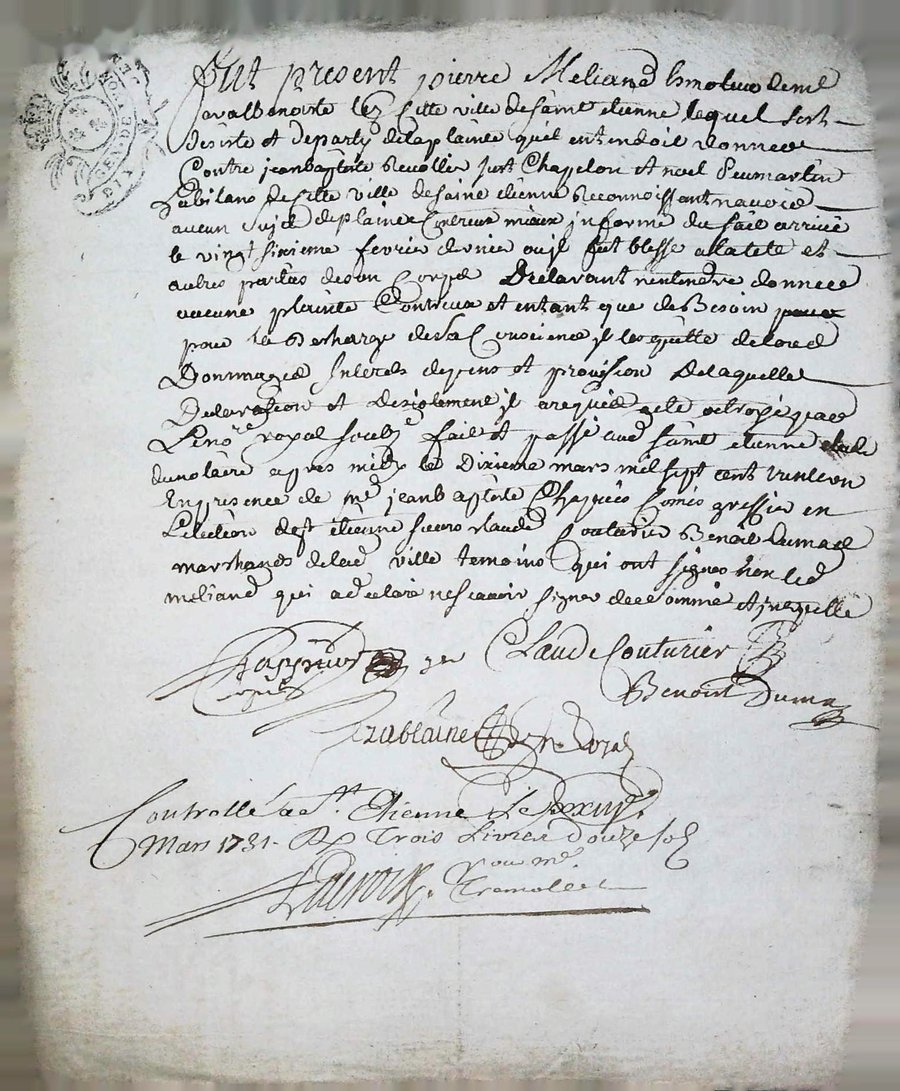 Fut present pierre Meliand
avalbenoite lez cette ville de saint etienne lequel sest
desisté et departy delaplainte quel entendoit donner
Contre jeanbaptiste Revollier just Chapelon et noel Peumartin
de cette ville de saint etienne Reconnoissant navoir
aucun sujet deplainte Contreux mieux informé du fait arrivé
le vingt sixieme fevrier dernier ou il fut blessé alatete et
autres parties deson Corps Declarant nentendre donner
aucune plainte Contreux et entant que de Besoin
pour la descharge desa Conscience il les quitte detous
Dommages Interets depens et provision Delaquelle
Declaration et desistement il a requis acte octroyé par
Le nore royal soubze fait et passé aud saint etienne etude
dunotaire apres midy le Dixieme mars mil sept cent trente un
En presence de me jeanbaptiste Chapuis Comis greffier en
Lelection de st etienne sieurs claude Couturier Benoit Dumas
marchands delad ville temoins qui ont signés non led
meliand qui a declaré nescavoir signer dece sommé et enquis
Claude Couturier
Benoit Dumas
Controllé a St Etienne Le
Mars 1731. Trois Livres Douze sols
Lacroix